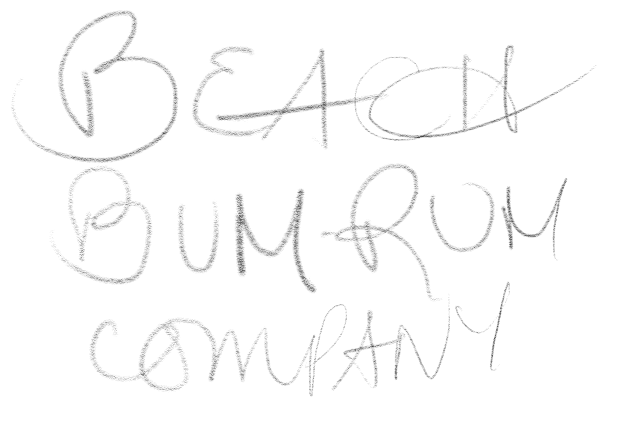 BEACH
BUM RUM
COMPANY